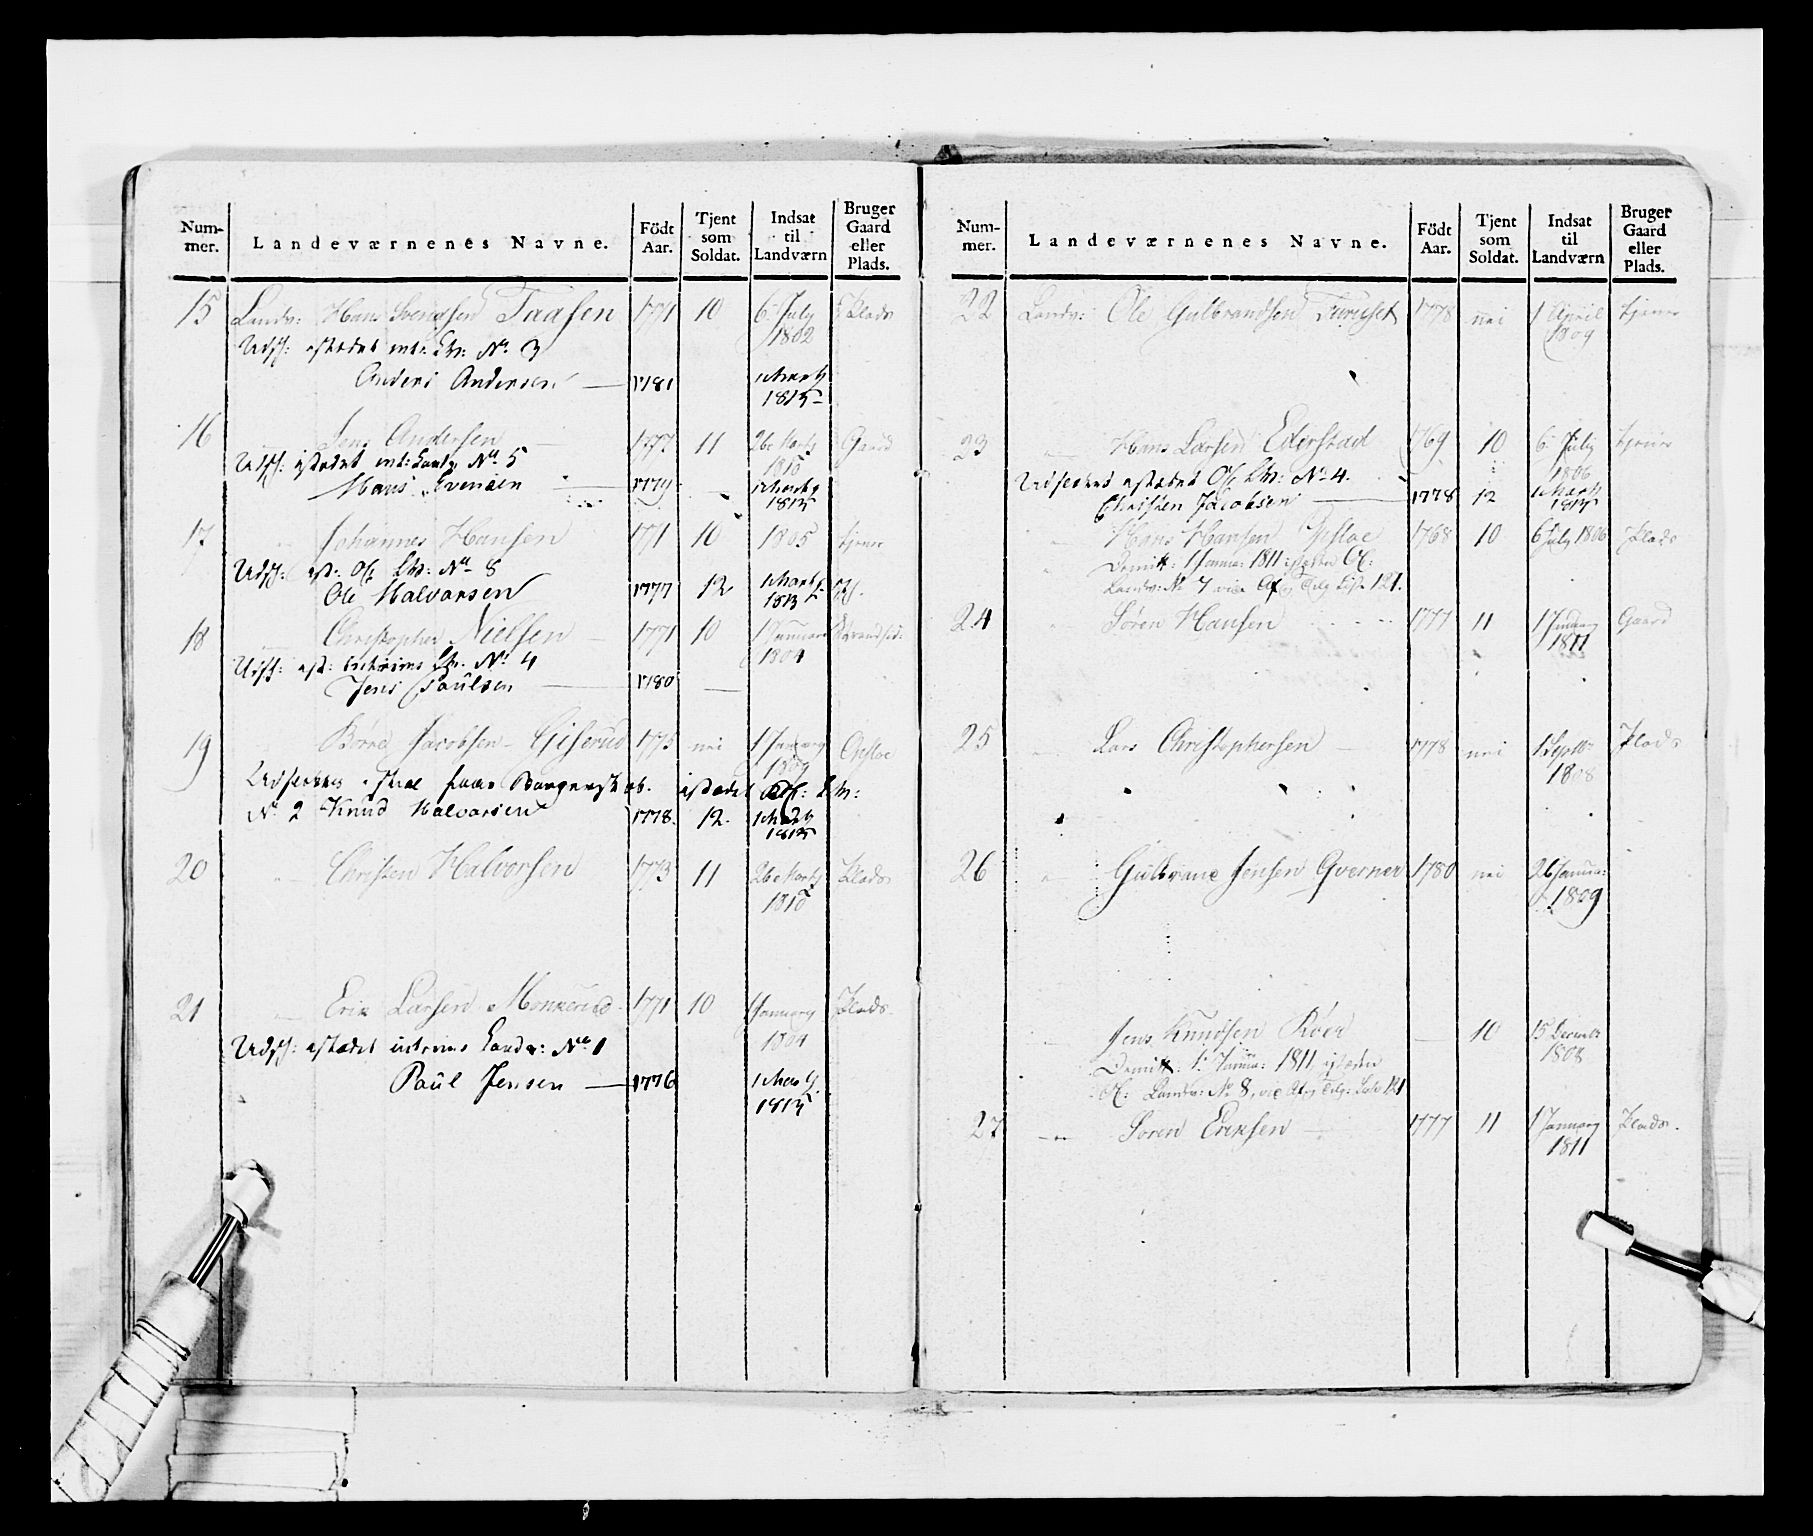 Num-mer. Landeværnenes Navne. Födt Aar. Tjent som Soldat. Indsat til Landværn Bruger Gaard eller Plads.
15 Landv: Hans Svendsen Taasen 1771 10 6 July 1802 Plads
Udsl: istædet int: Lv: No 3
Anders Andersen — 1781 1 Marts 1813
16 Jens Andersen — 1777 11 26 Marts 1810 Gaard
Udsl: istædet int: Landv No 5
Hans Svensen 1779 — 1 Marts 1813
17 " Johannes Hansen 1771 10 1805 tjener
Udsl: ist: Lv: No 8
Ole Halvorsen 1777 12 1 Marts 1813
18 — Christopher Nielsen — 1771 10 1 Januar 1804
Udsl: ist: interims Lv. No 4
Jens Paulsen — 1780 —
19 " Jacobsen 1775 nei 1 January 1809
istædet Lv:
No 2 Knud Halvorsen 1778. 12. 1 Marts 1813
20 " Christen Halvorsen 1773 11 26 Marts 1810 Plads
21 — Erik Larsen Monkerud 1771 10 1 January 1804 Plads.
Udsl: istædet interims Landv: No 1
Paul Jensen — 1776 1 Marts 1813
Num-mer. Landeværnenes Navne. Födt Aar. Tjent som Soldat. Indsat til Landværn Bruger Gaard eller Plads.
22 Landv: Ole Gulbrandsen Furuset 1778 nei 1 April 1809 tjener
23 — Hans Larsen Ederstad 1769 10 6 July 1806 tjener
istædet Lv: No 4.
Christen Jacobsen — 1778 12 1 Marts 1813
" Hans Hansen 1768 10 6 July 1806 Plads
Dimit: 1 Janua: 1811 istæden
Landv: No 7 121.
24 " Sören Hansen 1777 11 1 January 1811 Gaard
25 Lars Christophersen — 1778 nei 1 Septbr 1808 Plads
26 " Gulbrand Jensen Qverner 1780 nei 26 Janua: 1809
Jens Knudsen Röer — 10 15 Decembr 1808
Dimit: 1: Janua: 1811 istæden
Landv: No 8, 121
27 Sören Eriksen — 1777 11 1 January 1811 Plads.